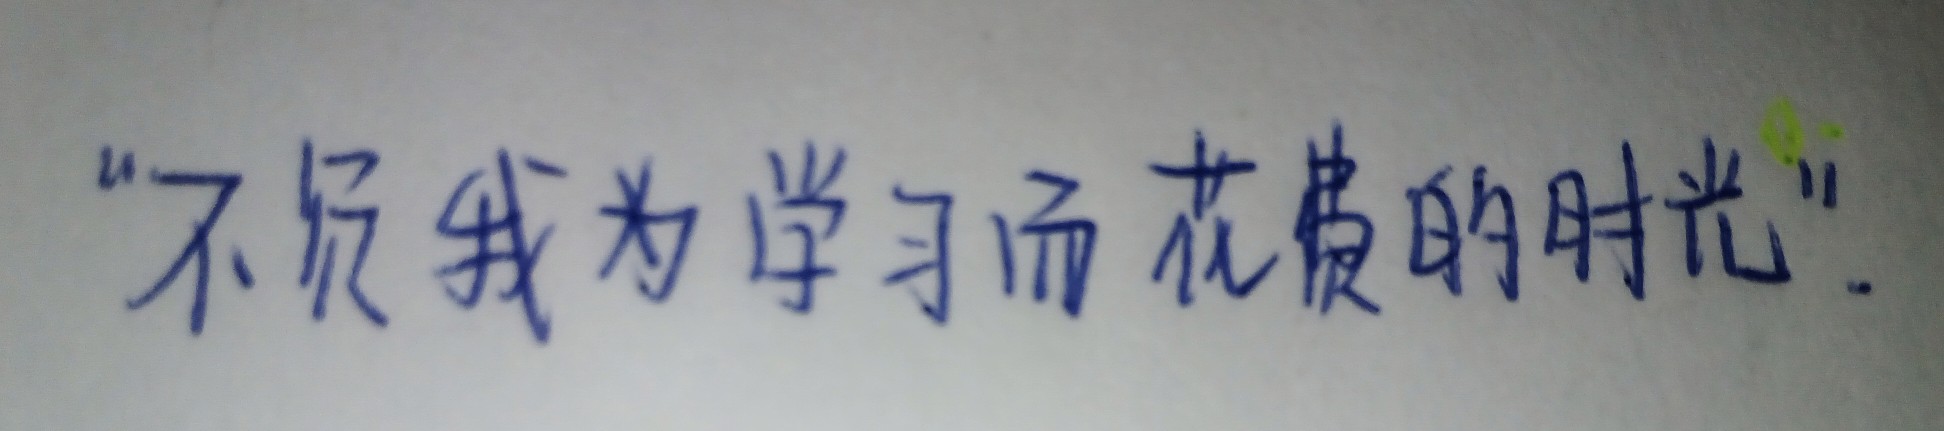 “不负我为学习而花费的时光”.